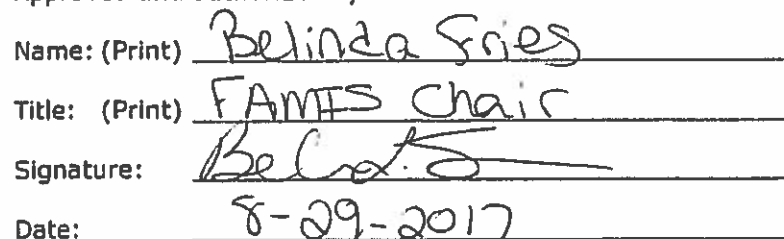 Name: (Print) Belinda Fries
Title: (Print) FAMIS Chair
Signature:
Date: 8-29-2017